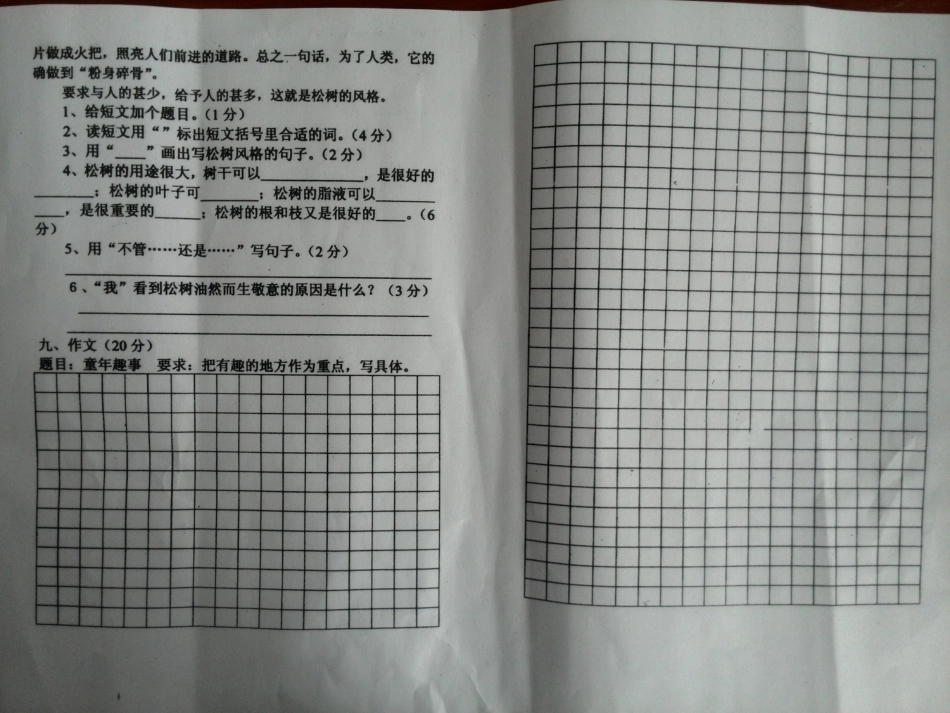 片做成火把，照亮人们前进的道路。总之一句话，为了人类，它的
确做到“粉身碎骨”。
要求与人的甚少，给予人的甚多，这就是松树的风格。
1、给短文加个题目。（1分）
2、读短文用“”标出短文括号里合适的词。（4分）
3、用“____”画出写松树风格的句子。（2分）
4、松树的用途很大，树干可以______________，是很好的
________；松树的叶子可________；松树的脂液可以________
____，是很重要的______；松树的根和枝又是很好的____。（6
分）
5、用“不管……还是……”写句子。（2分）
6、“我”看到松树油然而生敬意的原因是什么？（3分）
九、作文（20分）
题目：童年趣事 要求：把有趣的地方作为重点，写具体。